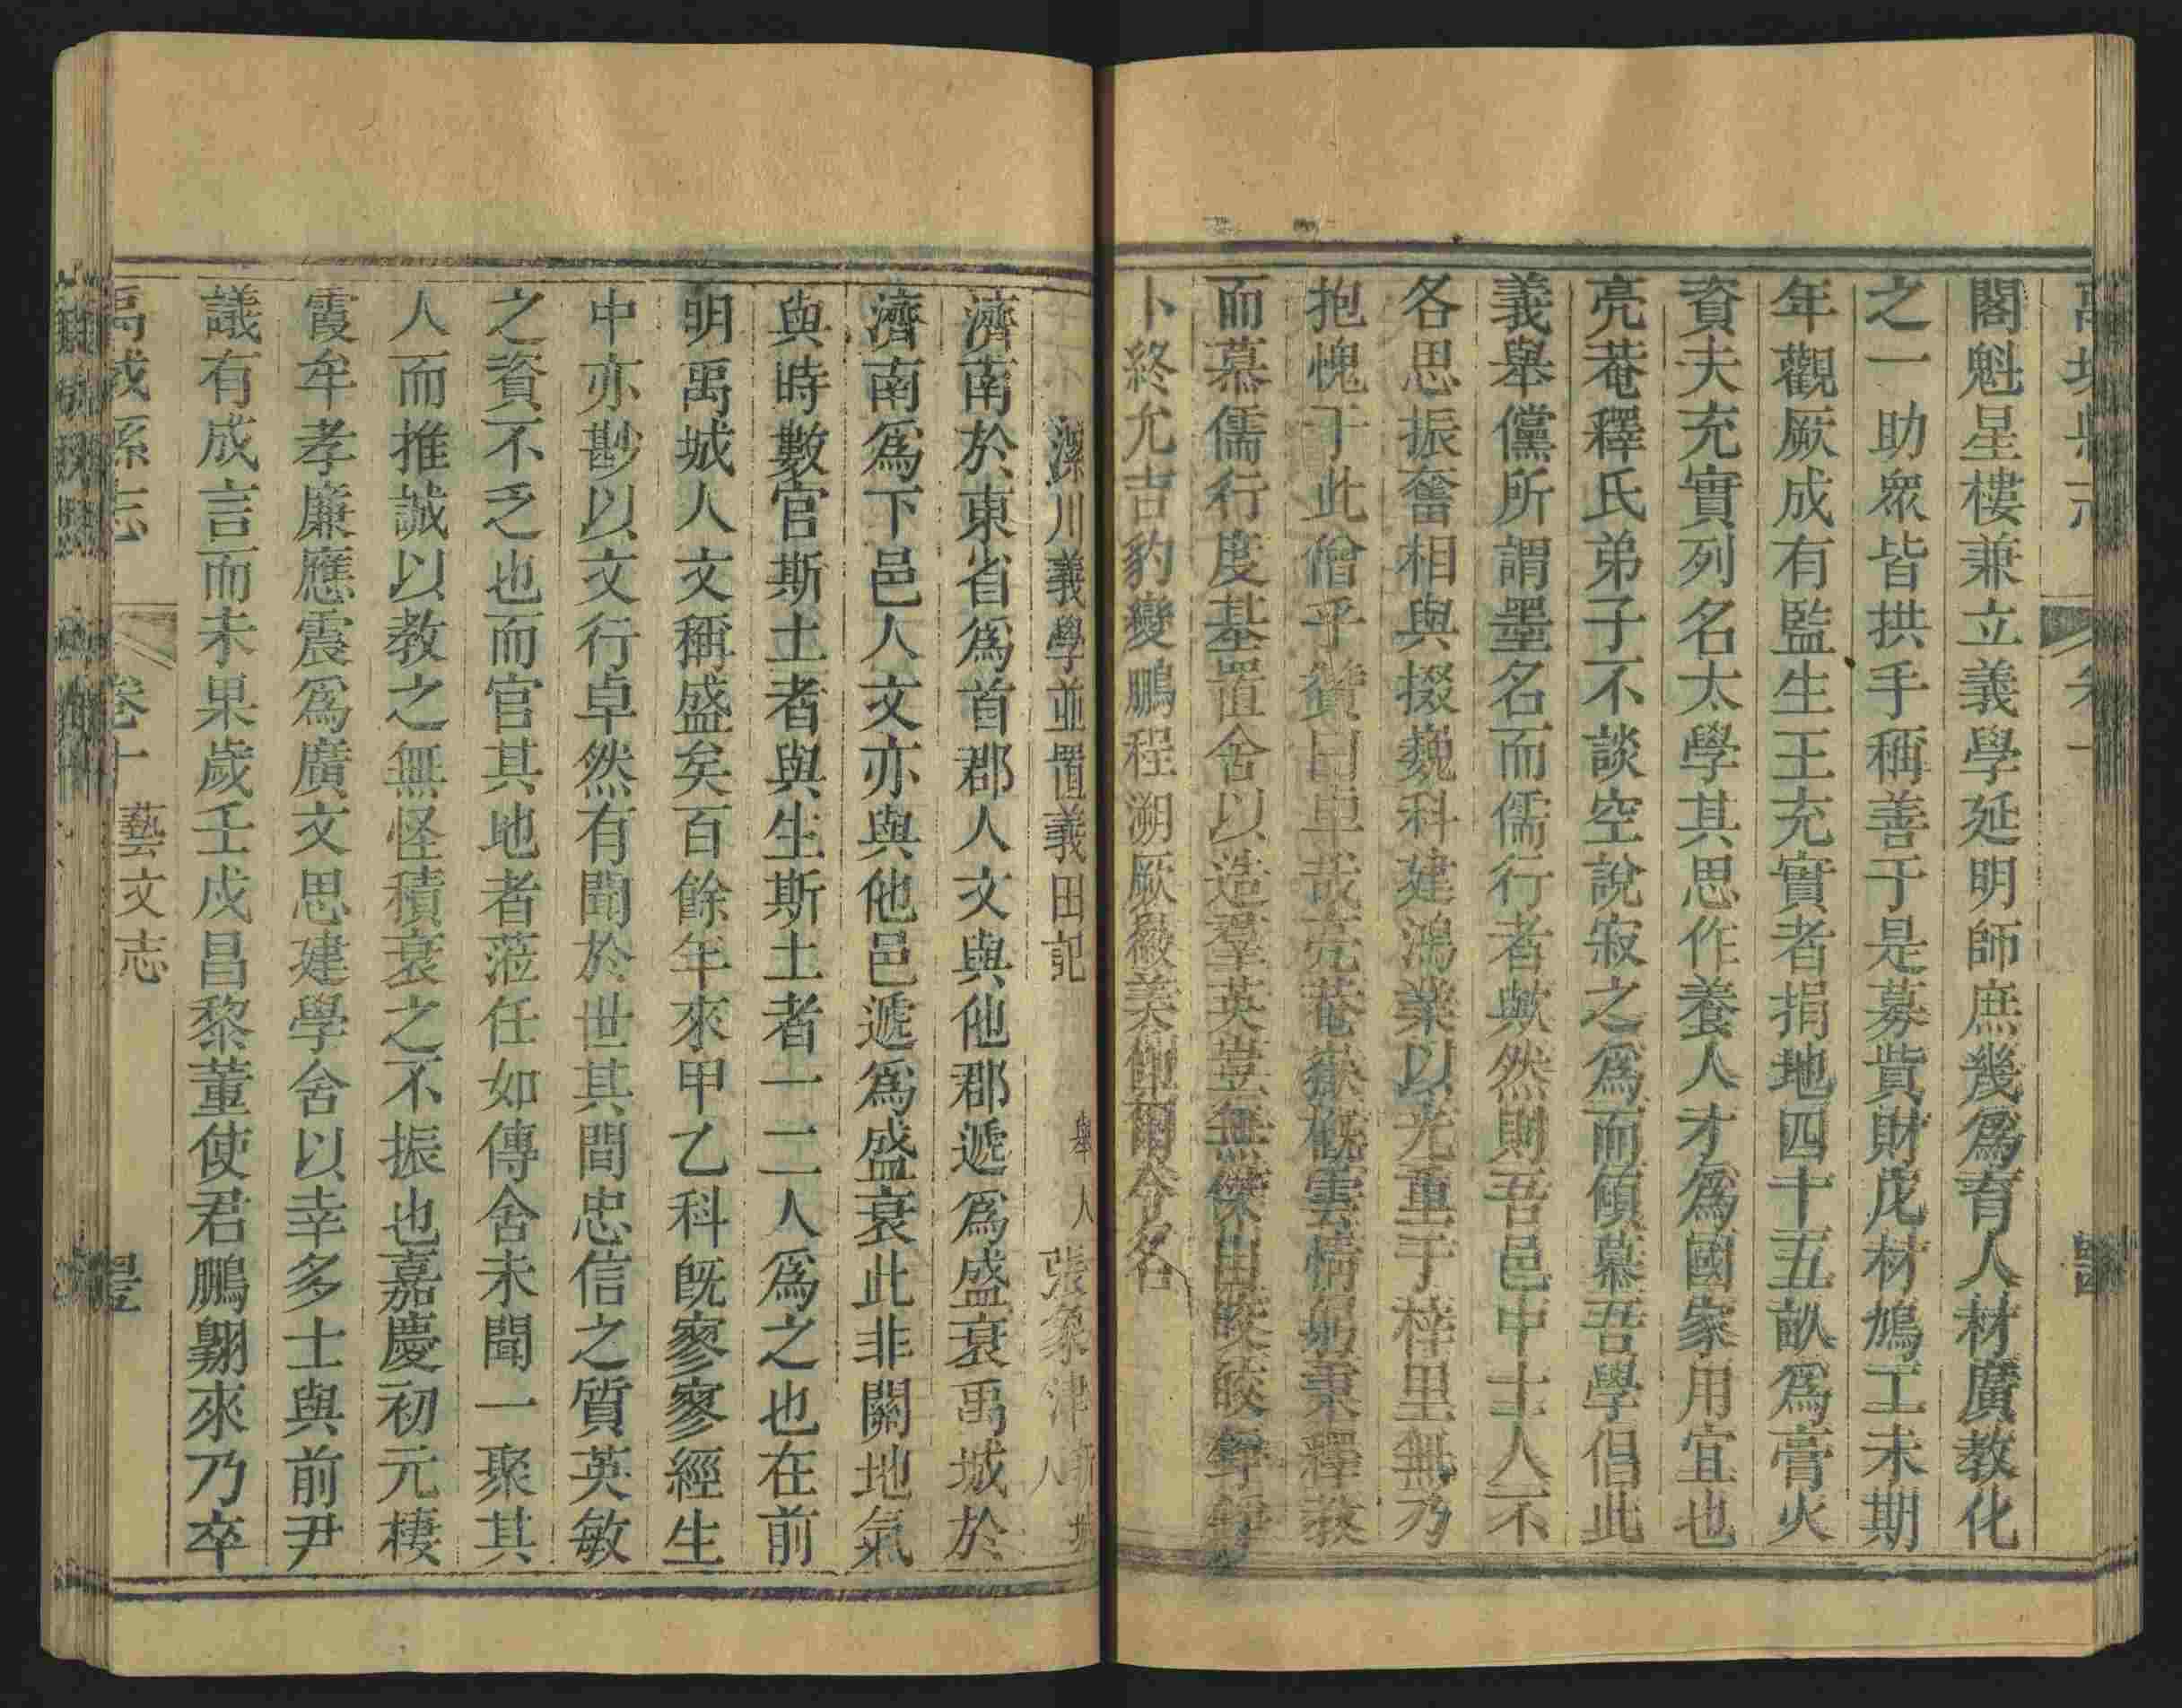 閣魁星樓兼立義學延明師庶幾爲育人材廣教化
之一助衆皆拱手稱善于是募貲財庀材鳩工未期
年觀厥成有監生王充實者捐地四十五畝爲膏火
資夫充實列名太學其思作養人才爲國家用宜也
亮菴釋氏弟子不談空說寂之爲而傾慕吾學倡此
義舉儻所謂墨名而儒行者歟然則吾邑中士人不
各思振奮相與掇巍科建鴻業以光重于梓里無乃
抱愧于此僧乎贊曰卓哉亮菴嶽巍雲情躬秉釋教
而慕儒行度基置舍以造羣英豈無傑出皎皎錚錚
卜終允吉豹變鵬程溯厥嶽美爾令名
漯川義學並置義田記 舉人 張象津 新城人
濟南於東省爲首郡人文與他郡遞爲盛衰禹城於
濟南爲下邑人文亦與他邑遞爲盛衰此非關地氣
與時數官斯土者與生斯土者一二人爲之也在前
明禹城人文稱盛矣百餘年來甲乙科既寥寥經生
中亦尠以文行卓然有聞於世其間忠信之質英敏
之資不乏也而官其地者蒞任如傳舍未聞一聚其
人而推誠以教之無怪積衰之不振也嘉慶初元棲
霞牟孝廉應震爲廣文思建學舍以幸多士與前尹
議有成言而未果歲壬戌昌黎董使君鵬翺來乃卒
禹城縣志 卷十 藝文志 罡